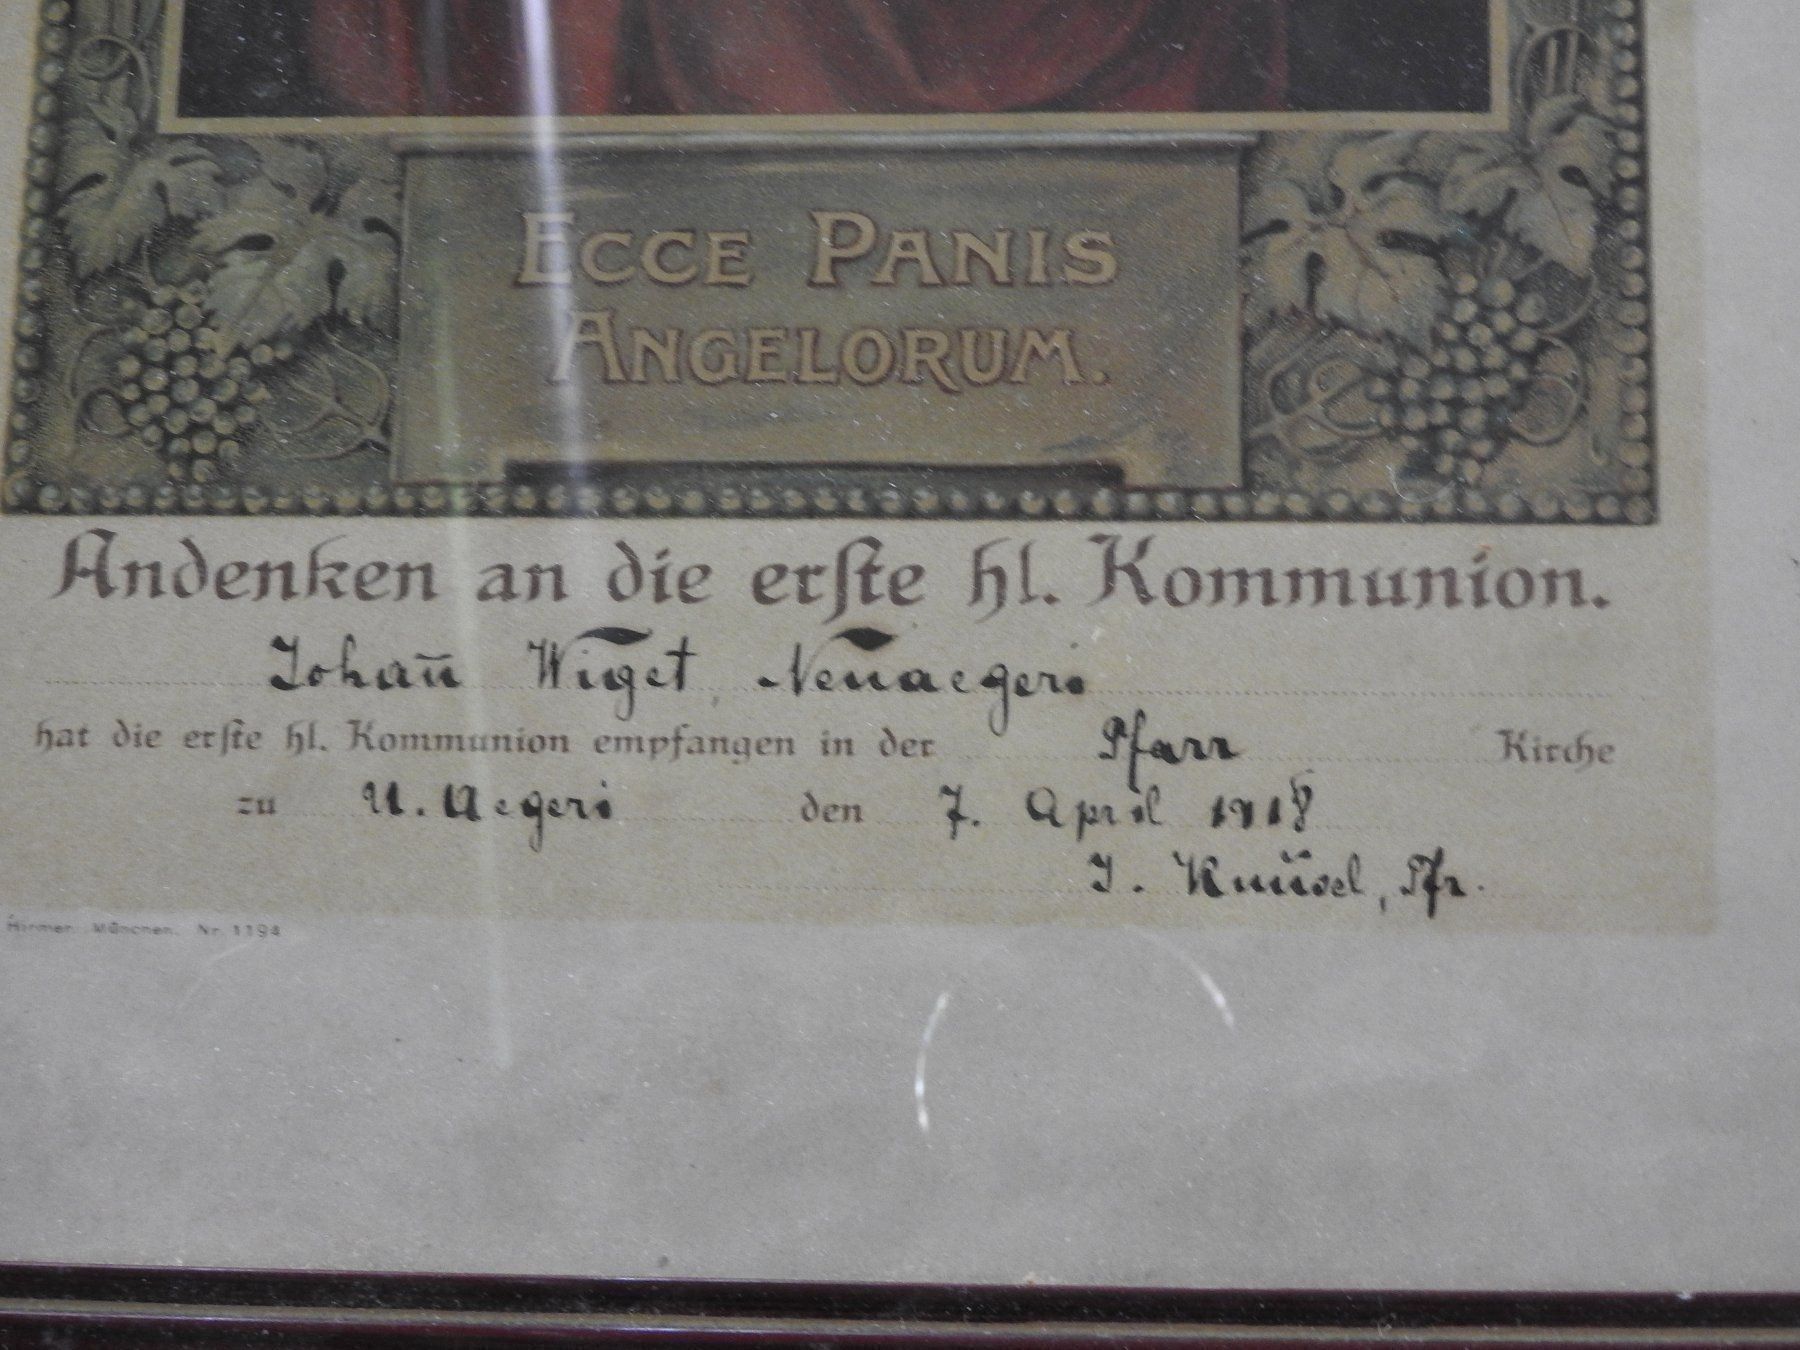 ECCE PANIS
ANGELORUM.
Andenken an die erſte hl. Kommunion.
Johan̄ Wiget, Neuaegeri
hat die erſte hl. Kommunion empfangen in der Pfarr Kirche
zu U. Aegeri den 7. April 1918
J. Knüsel, Pfr.
Hirmer. München. Nr. 1194